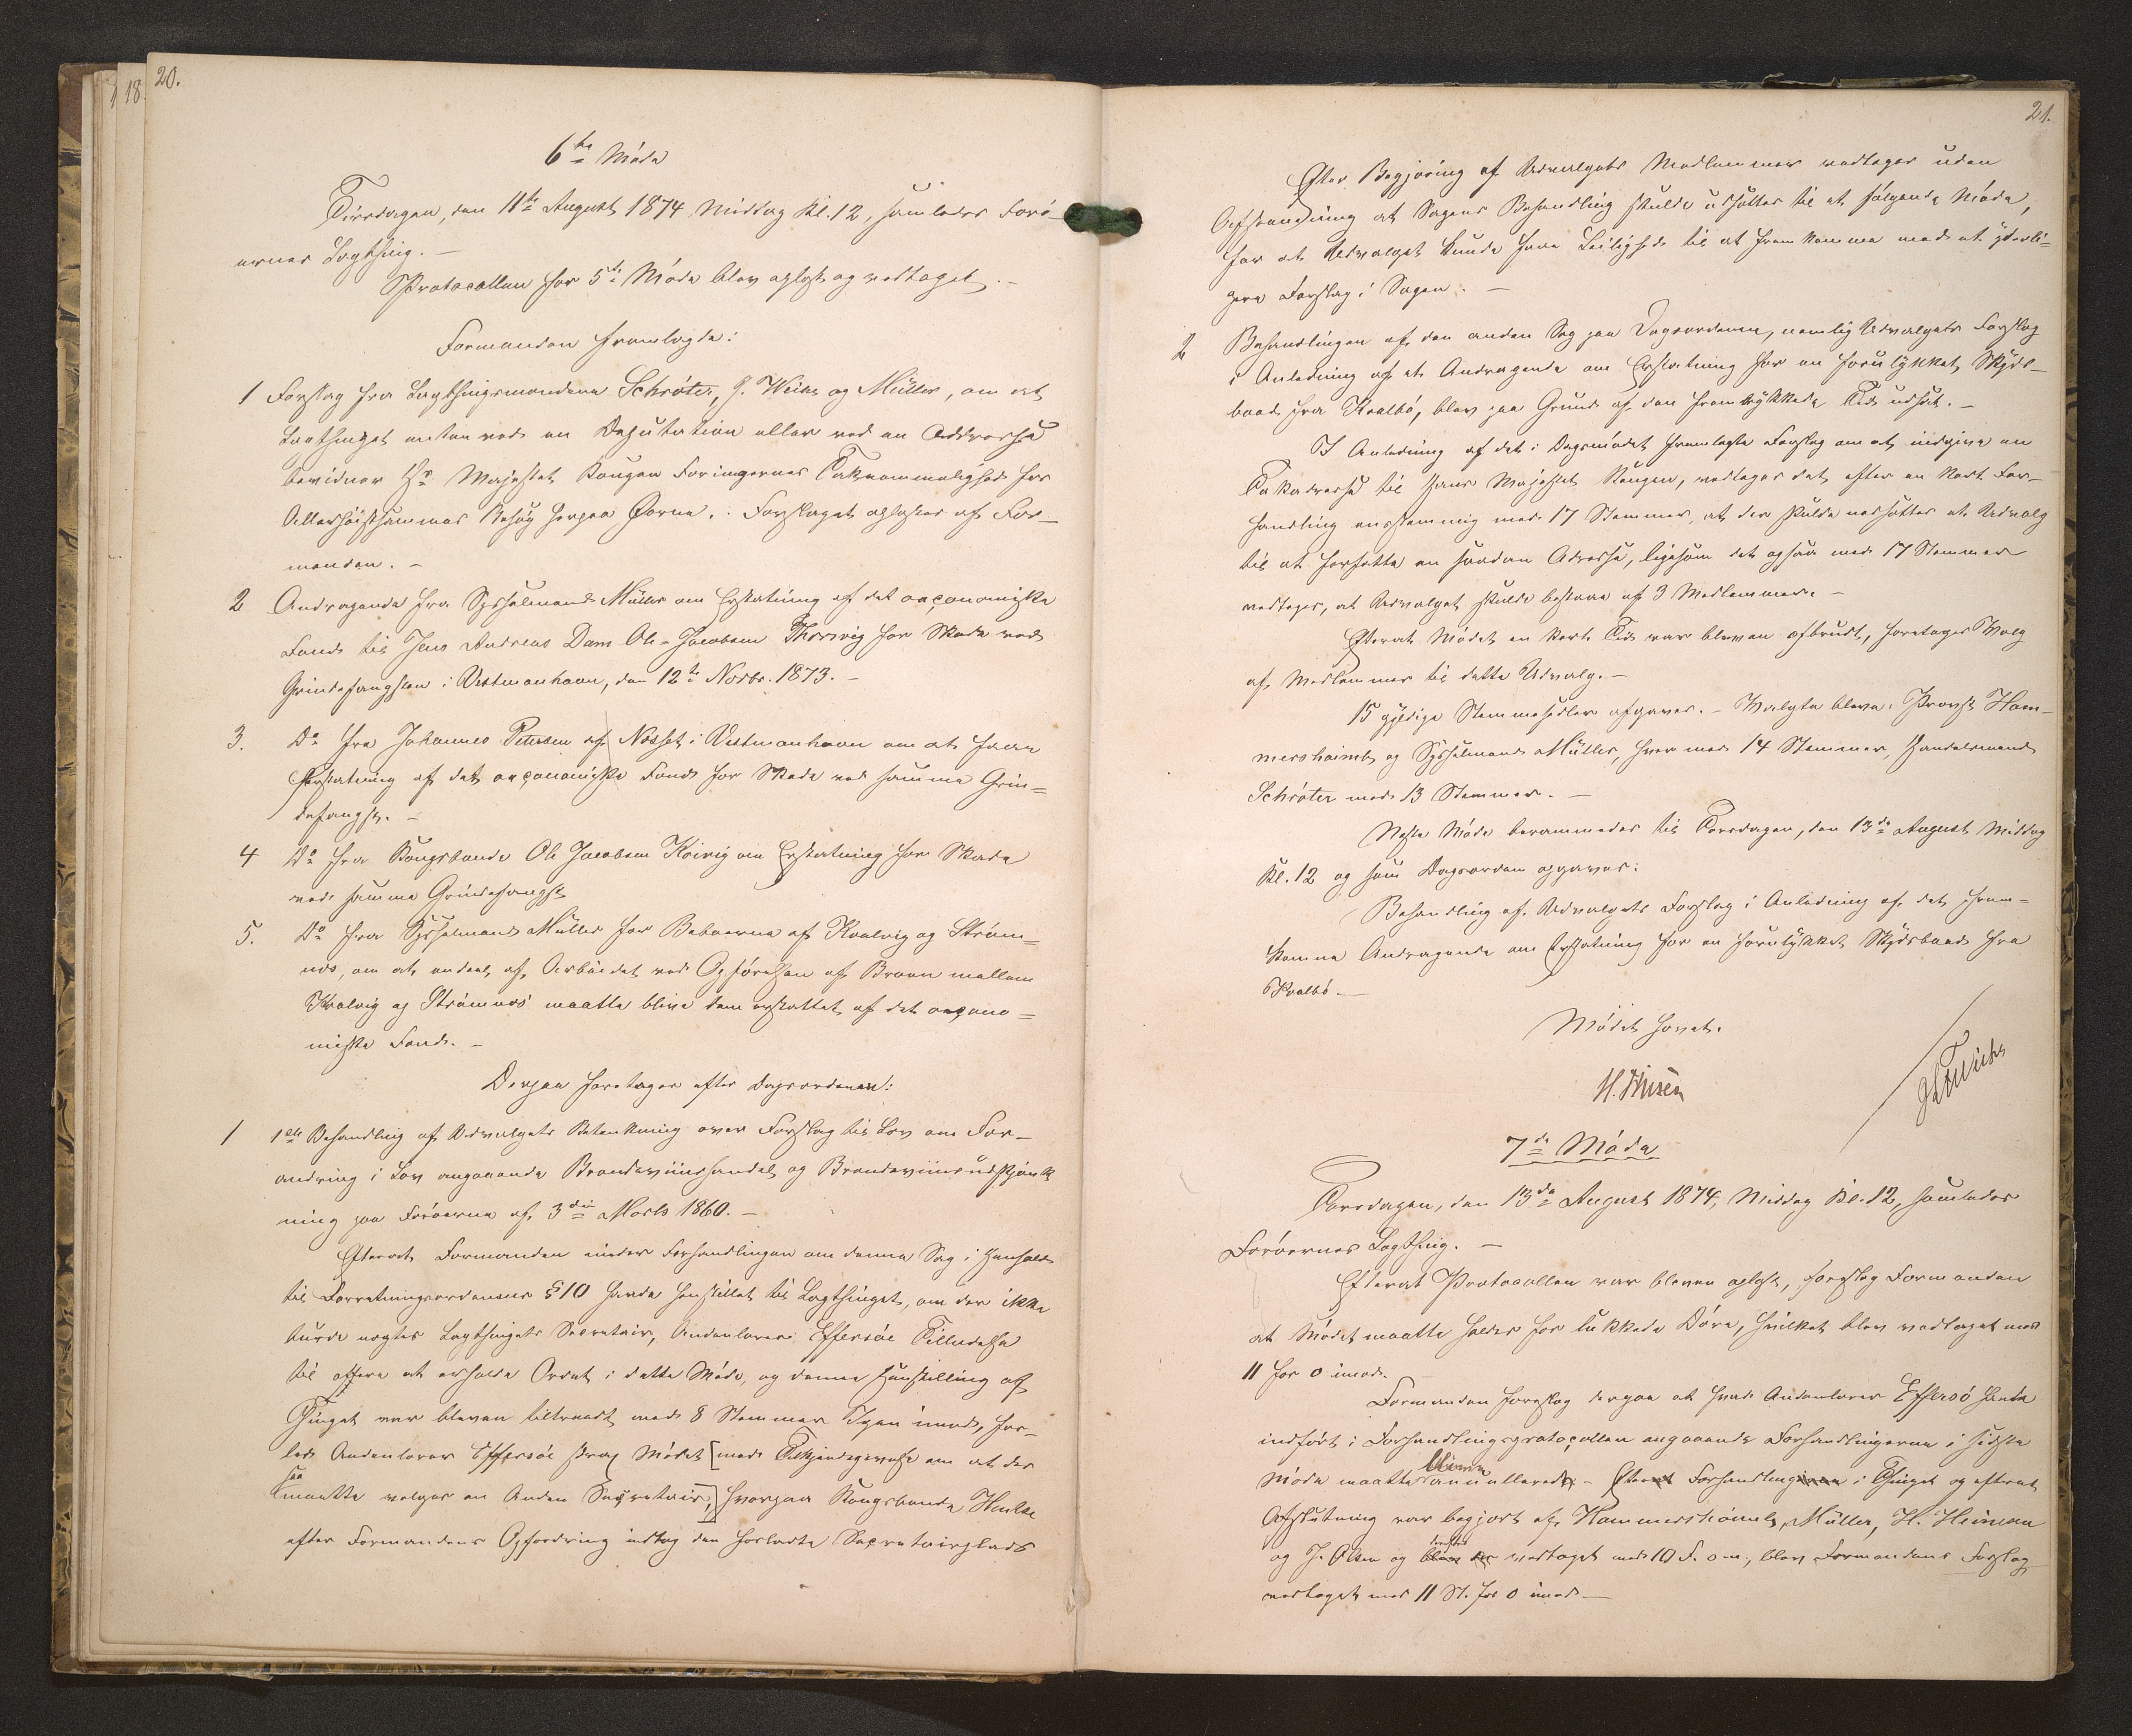 18.
20.
6te Møde
Tirsdagen, den 11te August 1874 Middag Kl. 12, samledes Færø-
ernes Lagthing. -
Protocollen for 5te Møde blev oplæst og vedtaget. -
Formanden fremlagde:
1 Forslag fra Lagthingsmændene Schrøter, J. Weihe og Müller, om at
Lagthinget enten ved en Deputation eller ved en Addresse
bevidner Hs Majestæt Kongen Færingernes Taknemmelighed for
Allerhøistsammes Besøg herpaa Øerne. Forslaget oplæstes af For-
manden. -
2 Andragende fra Sysselmand Müller om Erstatning af det oeconomiske
Fond til Jens Andreas Dam Ole-Jacobsen Thorsvig for Skade ved
Grindefangsten i Vestmanhavn, den 12te Novbr. 1873. -
3. Do fra Johannes Petersen af Næsset i Vestmanhavn om at faae
Erstatning af det oeconomiske Fond for Skade ved samme Grin=
defangst. -
4 Do fra Kongsbonde Ole Jacobsen Kvivig om Erstatning for Skade
ved samme Grindefangst
5. Do fra Sysselmand Müller for Beboerne af Kvalvig og Strøm=
næs, om at endeel af Arbeidet ved Opførelsen af Broen mellem
Kvalvig og Strømnæs maatte blive dem erstattet af det oecono=
miske Fond. -
Derpaa foretoges efter Dagsordenen:
1 1ste Behandling af Udvalgets Betænkning over Forslag til Lov om For-
andring i Lov angaaende Brændeviinshandel og Brændeviinsudskjænk
ning paa Færøerne af 3die Marts 1860. -
Efterat Formanden under Forhandlingen om denne Sag i Henhold
til Forretningsordenens § 10 havde henstillet til Lagthinget, om der ikke
burde negtes Lagthingets Secretair, Underlærer Effersøe Tilladelse
til oftere at erholde Ordet i dette Møde, og denne Henstilling af
Thinget var bleven tiltraadt med 8 Stemmer Igen imod, for-
lod Underlærer Effersøe strax Mødet [med Tilkjendegivelse om at der
saa
maatte vælges en Anden Secretair,] hvorpaa Kongsbonde Hentze
efter Formandens Opfordring indtog den forladte Secretairplads
21.
Efter Begjæring af Udvalgets Medlemmer vedtoges uden
Afstemning at Sagens Behandling skulde udsættes til et følgende Møde,
for at Udvalget kunde have Leilighed til at fremkomme med et yderli=
gere Forslag i Sagen. -
2 Behandlingen af den anden Sag paa Dagsordenen, nemlig Udvalgets Forslag
i Anledning af et Andragende om Erstatning for en forulykket Skyds-
baad fra Kvalbø, blev paa Grund af den fremrykkede Tid udsat. -
I Anledning af det i Dagsmødet fremlagte Forslag om at indgive en
Takadresse til Hans Majestæt Kongen, vedtoges det efter en kort For-
handling enstemmig med 17 Stemmer, at der skulde nedsættes et Udvalg
til at forfatte en saadan Adresse, ligesom det ogsaa med 17 Stemmer
vedtoges, at Udvalget skulde bestaae af 3 Medlemmer. -
Efterat Mødet en kort Tid var bleven afbrudt, foretoges Valg
af Medlemmer til dette Udvalg. -
15 gyldige Stemmesedler afgaves. - Valgte bleve: Provst Ham-
mershaimb og Sysselmand Müller, hver med 14 Stemmer, Handelsmand
Schrøter med 13 Stemmer. -
Næste Møde berammedes til Torsdagen, den 13de August Middag
Kl. 12 og som Dagsorden opgaves:
Behandling af Udvalgets Forslag i Anledning af det frem-
komne Andragende om Erstatning for en forulykket Skydsbaad fra
Kvalbø. -
Mødet hævet.
7de Møde
Torsdagen, den 13de August 1874, Middag Kl. 12, samledes
Færøernes Lagthing. -
Efterat Protocollen var bleven oplæst, foreslog Formanden
at Mødet maatte holdes for lukkede Døre, hvilket blev vedtaget med
11 for 0 imod.
Formanden foreslog derpaa at hvad Underlærer Effersø havde
indført i Forhandlingsprotocollen angaaende Forhandlingerne i sidste
blive
Møde maatte annulleret. - Efter Forhandling i Thinget og efterat
Afslutning var begjært af Hammershaimb, Müller, H. Heinesen
og J. Olsen og vedtaget med 10 S. 0 m., blev Formandens Forslag
vedtaget med 11 St. for 0 imod. -